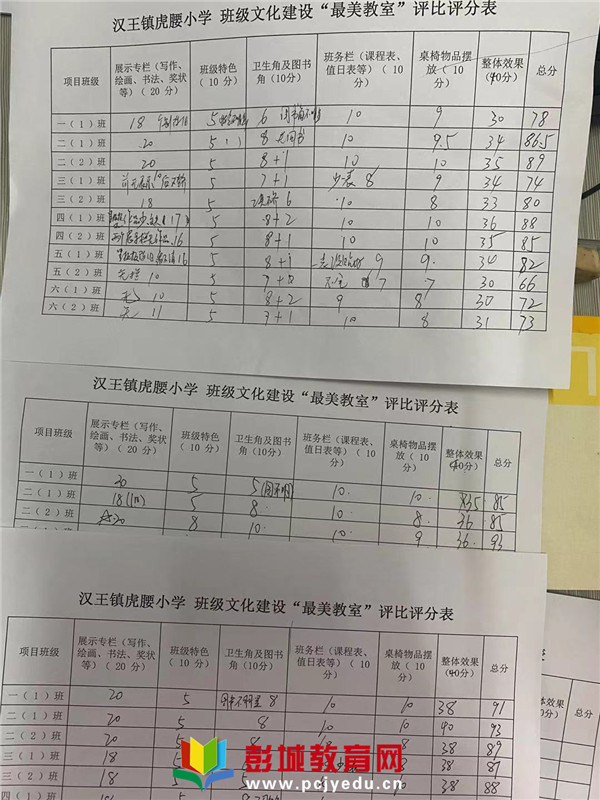 汉王镇虎腰小学 班级文化建设“最美教室”评比评分表
项目班级 展示专栏（写作、绘画、书法、奖状等）（20分） 班级特色（10分） 卫生角及图书角（10分） 班务栏（课程表、值日表等）（10分） 桌椅物品摆放（10分） 整体效果（40分） 总分
一（1）班 18 5 6 10 9 30 78
二（1）班 20 5 8 10 9.5 34 86.5
二（2）班 20 5 8+1 10 10 35 89
三（1）班 5 7+1 少一表 8 9 34 74
三（2）班 18 5 6 10 8 33 80
四（1）班 17 5 8+2 10 10 36 88
四（2）班 16 5 8+1 10 10 35 85
五（1）班 16 5 8+1 9 9. 34 82
五（2）班 无栏 10 5 7 7 30 66
六（1）班 无 10 5 8+2 9 8 30 72
六（2）班 无 11 5 7+1 10 8 31 73
汉王镇虎腰小学 班级文化建设“最美教室”评比评分表
项目班级 展示专栏（写作、绘画、书法、奖状等）（20分） 班级特色（10分） 卫生角及图书角（10分） 班务栏（课程表、值日表等）（10分） 桌椅物品摆放（10分） 整体效果（40分） 总分
一（1）班 20 5 5 10. 10. 35 85
二（1）班 18 5 8. 10. 8. 36 85
二（2）班 20 8 10. 10. 9 36. 93
汉王镇虎腰小学 班级文化建设“最美教室”评比评分表
项目班级 展示专栏（写作、绘画、书法、奖状等）（20分） 班级特色（10分） 卫生角及图书角（10分） 班务栏（课程表、值日表等）（10分） 桌椅物品摆放（10分） 整体效果（40分） 总分
一（1）班 20 5 图书不明显 8 10 10 38 91
二（1）班 20 5 8 10 10 40 93
二（2）班 20 5 8 10 8 38 89
三（1）班 18 5 8 38 87
三（2）班 18 5 10 38 88
四（1）班
总分
彭城教育网
www.pcjyedu.cn